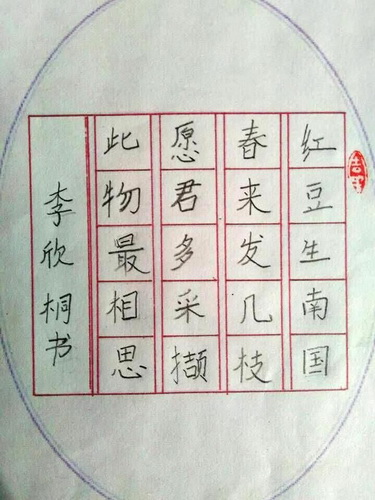 红豆生南国
春来发几枝
愿君多采撷
此物最相思
李欣桐书